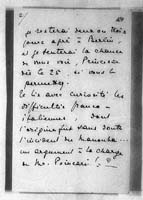 je resterai deux ou trois
jours après à Berlin
et je tenterai la chance
de vous voir, Princesse
dès le 25. si vous le
permettez.
Je lis avec curiosité les
difficultés franco-
italiennes, dont
l'origine fut sans doute
l'incident du Manouba...
un argument à la charge
de Mr. Poincaré !